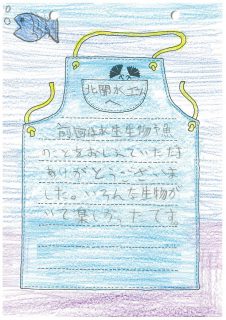 北関水さん
へ
前回は水生生物や魚
のことをおしえていただ
ありがとうございま
した。いろんな生物が
いて楽しかったです